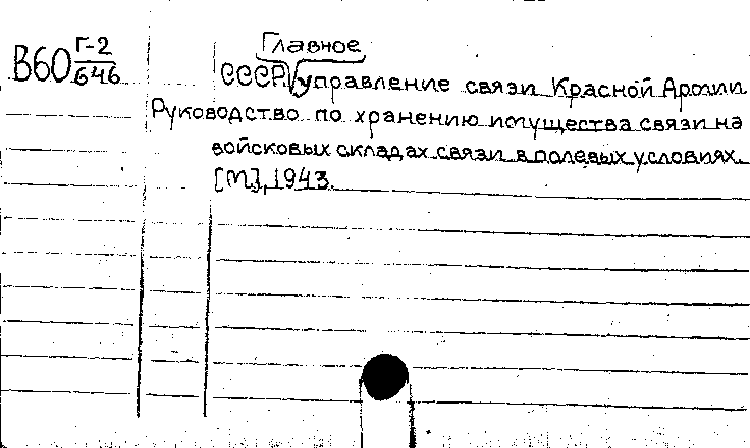 В60 Г-2/646
Главное
СССР. управление связи Красной Армии
Руководство по хранению имущества связи на
войсковых складах связи в полевых условиях.
[М], 1943.